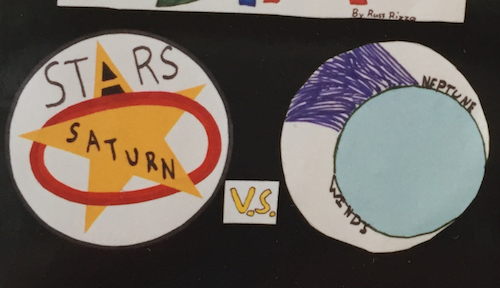 By Russ Rizzo
STARS
SATURN
V.S.
NEPTUNE
WINDS